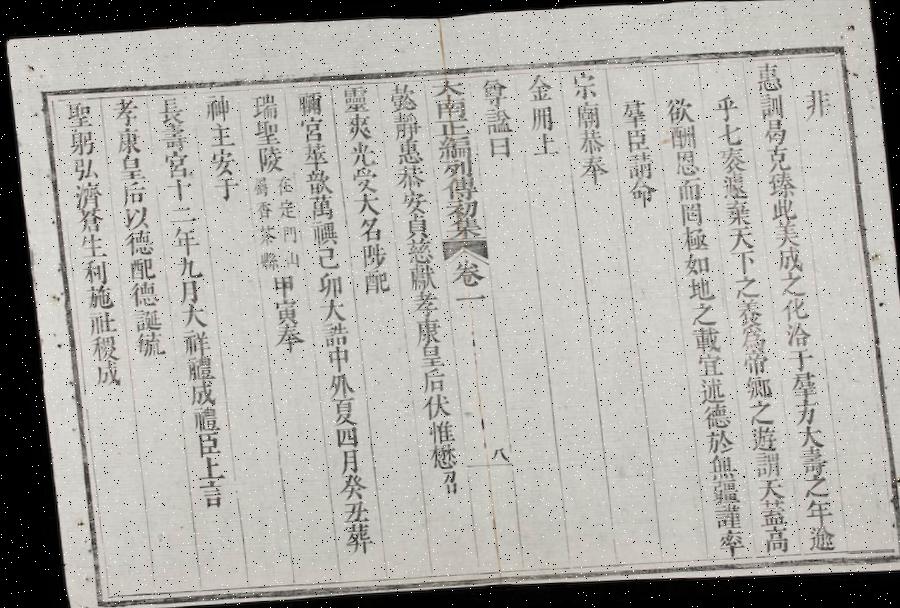 非
惠訓曷克臻此美成之化洽于羣方大壽之年逾
乎七袠遽棄天下之養爲帝鄉之遊謂天蓋高
欲酬恩而罔極如地之載宜述德於無疆謹率
羣臣請命
宗廟恭奉
金冊上
尊諡曰
大南正編列傳初集 卷一 八
懿靜惠恭安貞慈獻孝康皇后伏惟懋昭
靈爽光受大名陟配
禰宮莖歆萬禩己卯大誥中外夏四月癸丑葬
瑞聖陵在定門山屬香茶縣甲寅奉
神主安于
長壽宮十二年九月大祥禮成禮臣上言
孝康皇后以德配德誕毓
聖躬弘濟蒼生利施社稷成